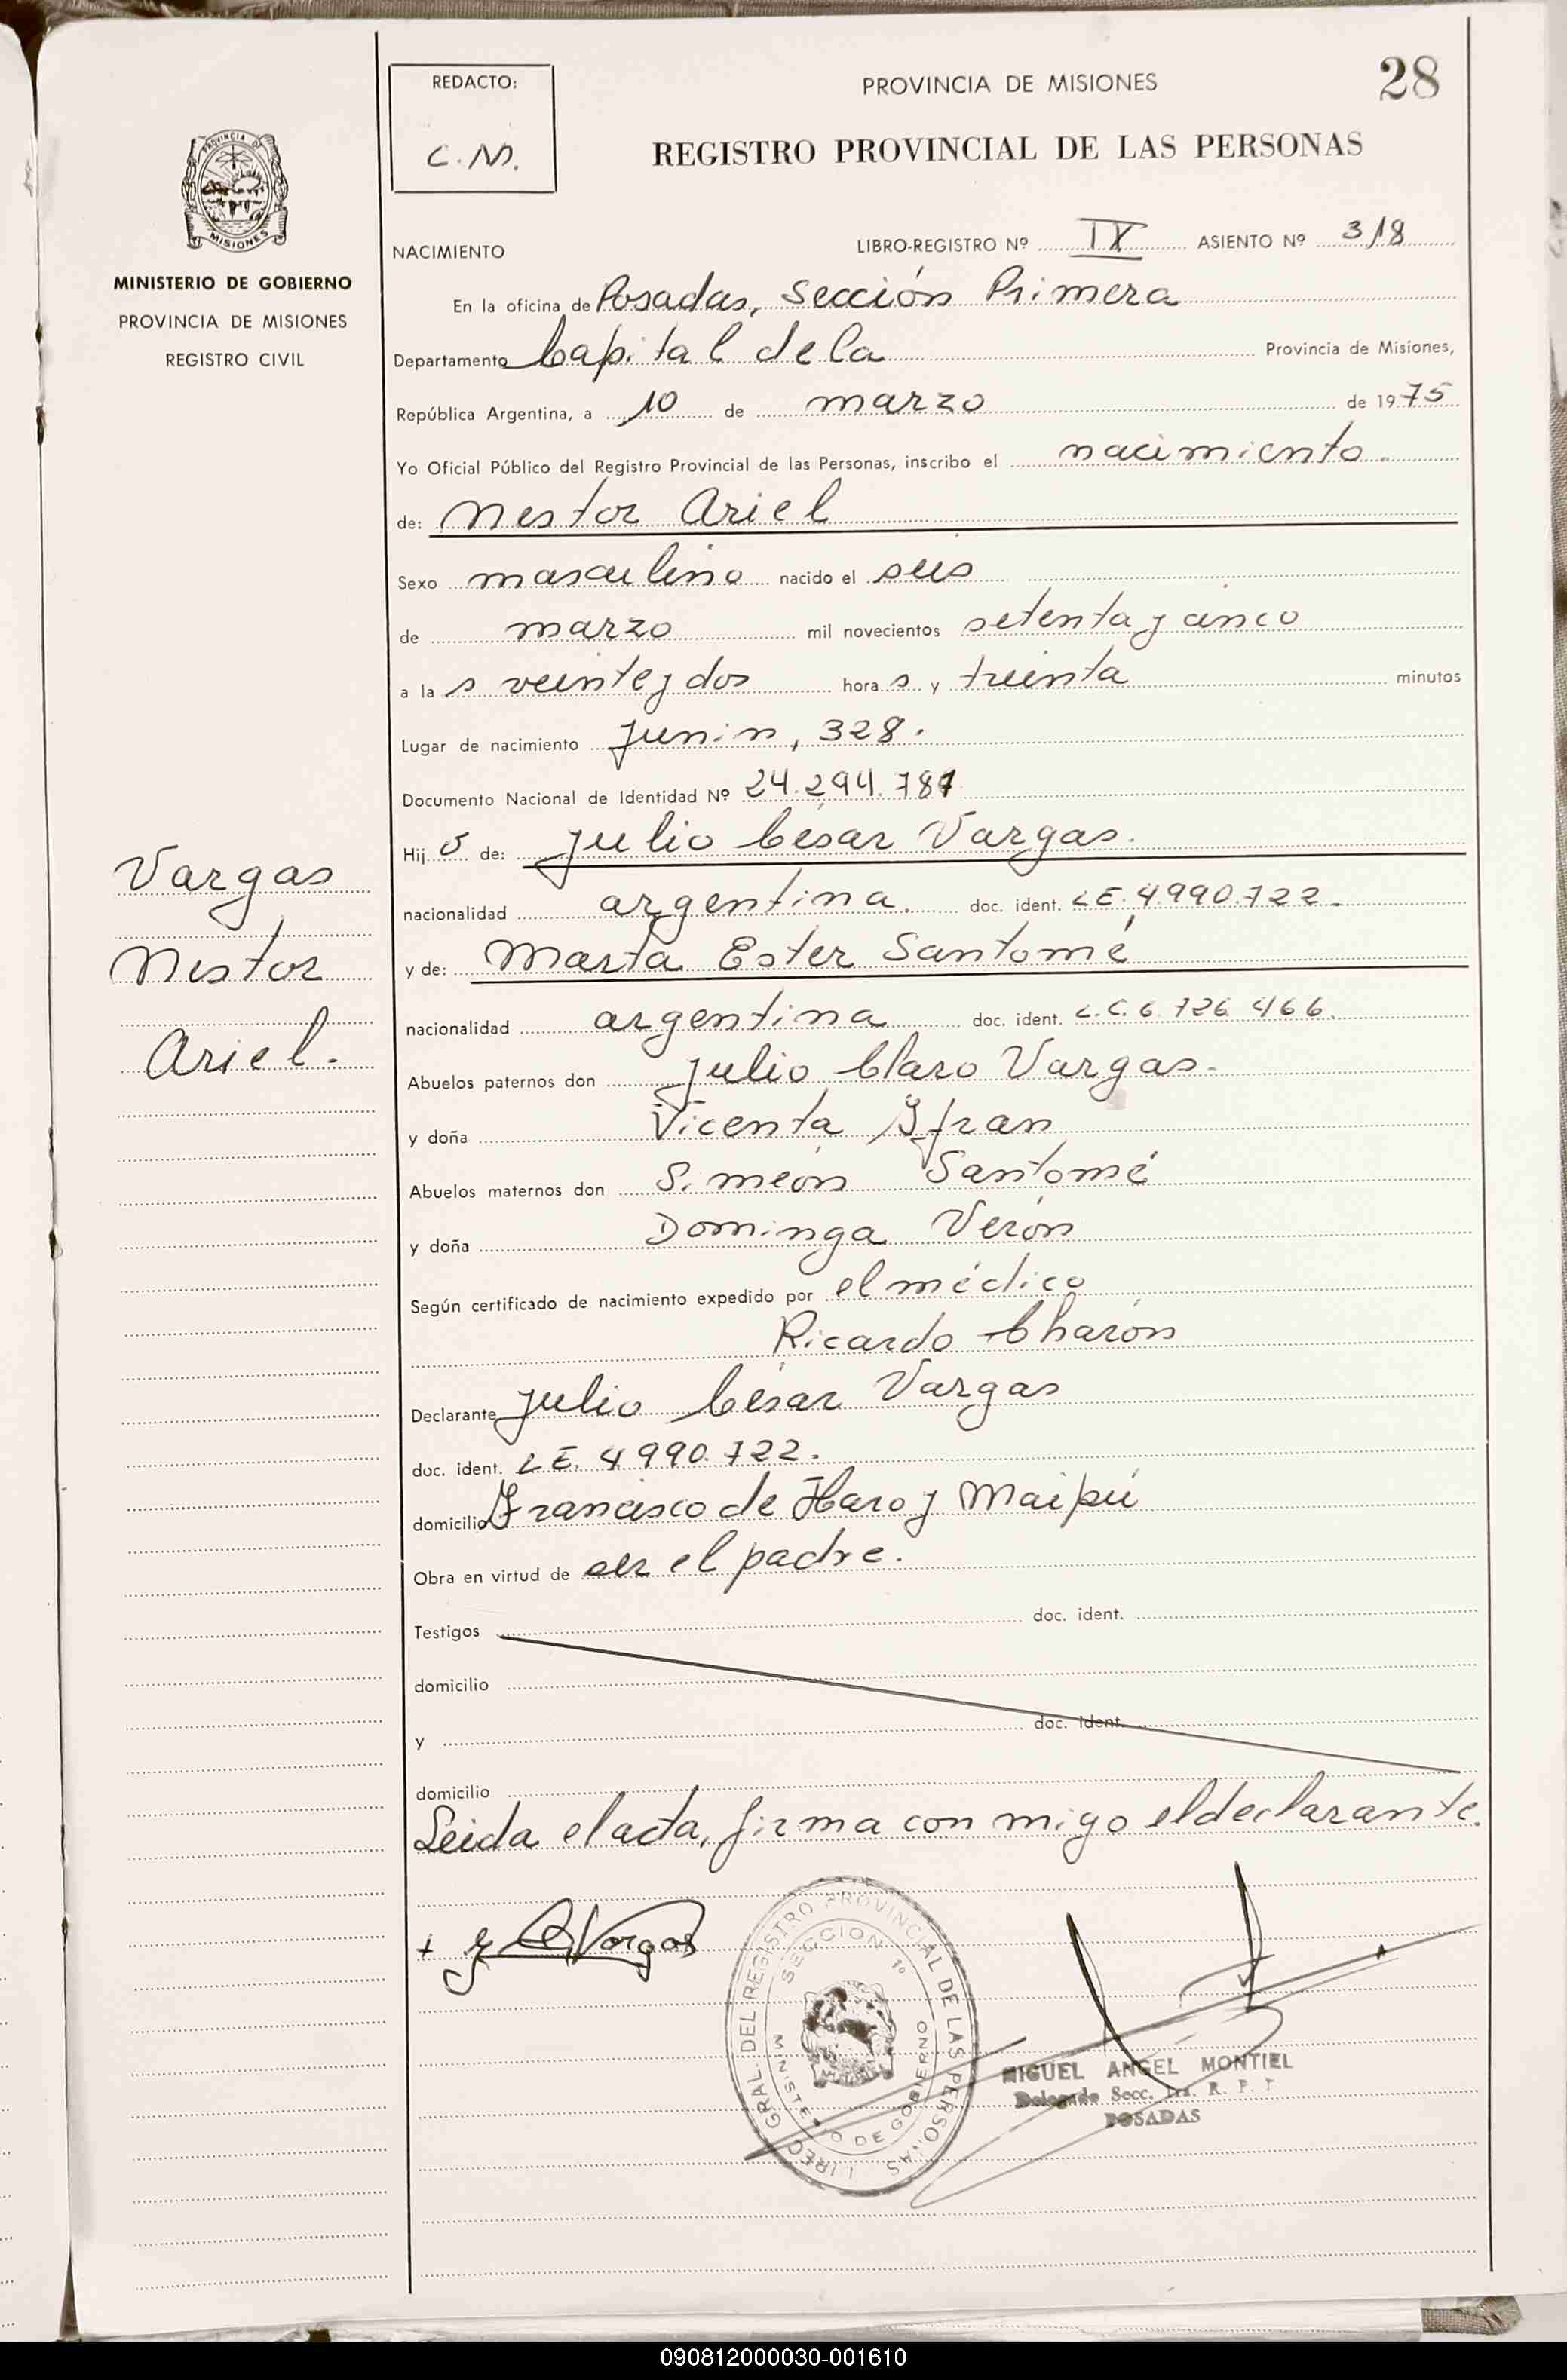 28
REDACTO:
C.M.
PROVINCIA DE MISIONES
REGISTRO PROVINCIAL DE LAS PERSONAS
PROVINCIA DE
MISIONES
MINISTERIO DE GOBIERNO
PROVINCIA DE MISIONES
REGISTRO CIVIL
NACIMIENTO
LIBRO-REGISTRO Nº IX ASIENTO Nº 318
En la oficina de Posadas, Sección Primera
Departamento Capital de la Provincia de Misiones,
República Argentina, a 10 de marzo de 1975
Yo Oficial Público del Registro Provincial de las Personas, inscribo el nacimiento
de: Nestor Ariel
Sexo masculino nacido el seis
de marzo mil novecientos setenta y cinco
a las veinte y dos horas y treinta minutos
Lugar de nacimiento Junin, 328.
Documento Nacional de Identidad Nº 24.294.787
Hijo de: Julio César Vargas.
nacionalidad argentina. doc. ident. LE. 4.990.722.
y de: Marta Ester Santomé
nacionalidad argentina doc. ident. L.C. 6.726.466.
Abuelos paternos don Julio Claro Vargas.
y doña Vicenta Ifran
Abuelos maternos don Simeón Santomé
y doña Dominga Verón
Según certificado de nacimiento expedido por el médico
Ricardo Charón
Declarante Julio César Vargas
doc. ident. LE. 4.990.722.
domicilio Francisco de Haro y Maipú
Obra en virtud de ser el padre.
Testigos doc. ident.
domicilio
y doc. ident.
domicilio
Leida el acta, firma con migo el declarante.
Vargas
Nestor
Ariel.
Vargas
DIREC. GRAL. DEL REGISTRO PROVINCIAL DE LAS PERSONAS
SECCION 1º
MINISTERIO DE GOBIERNO
MIGUEL ANGEL MONTIEL
Delegado Secc. 1ra. R. P. P.
POSADAS
090812000030-001610